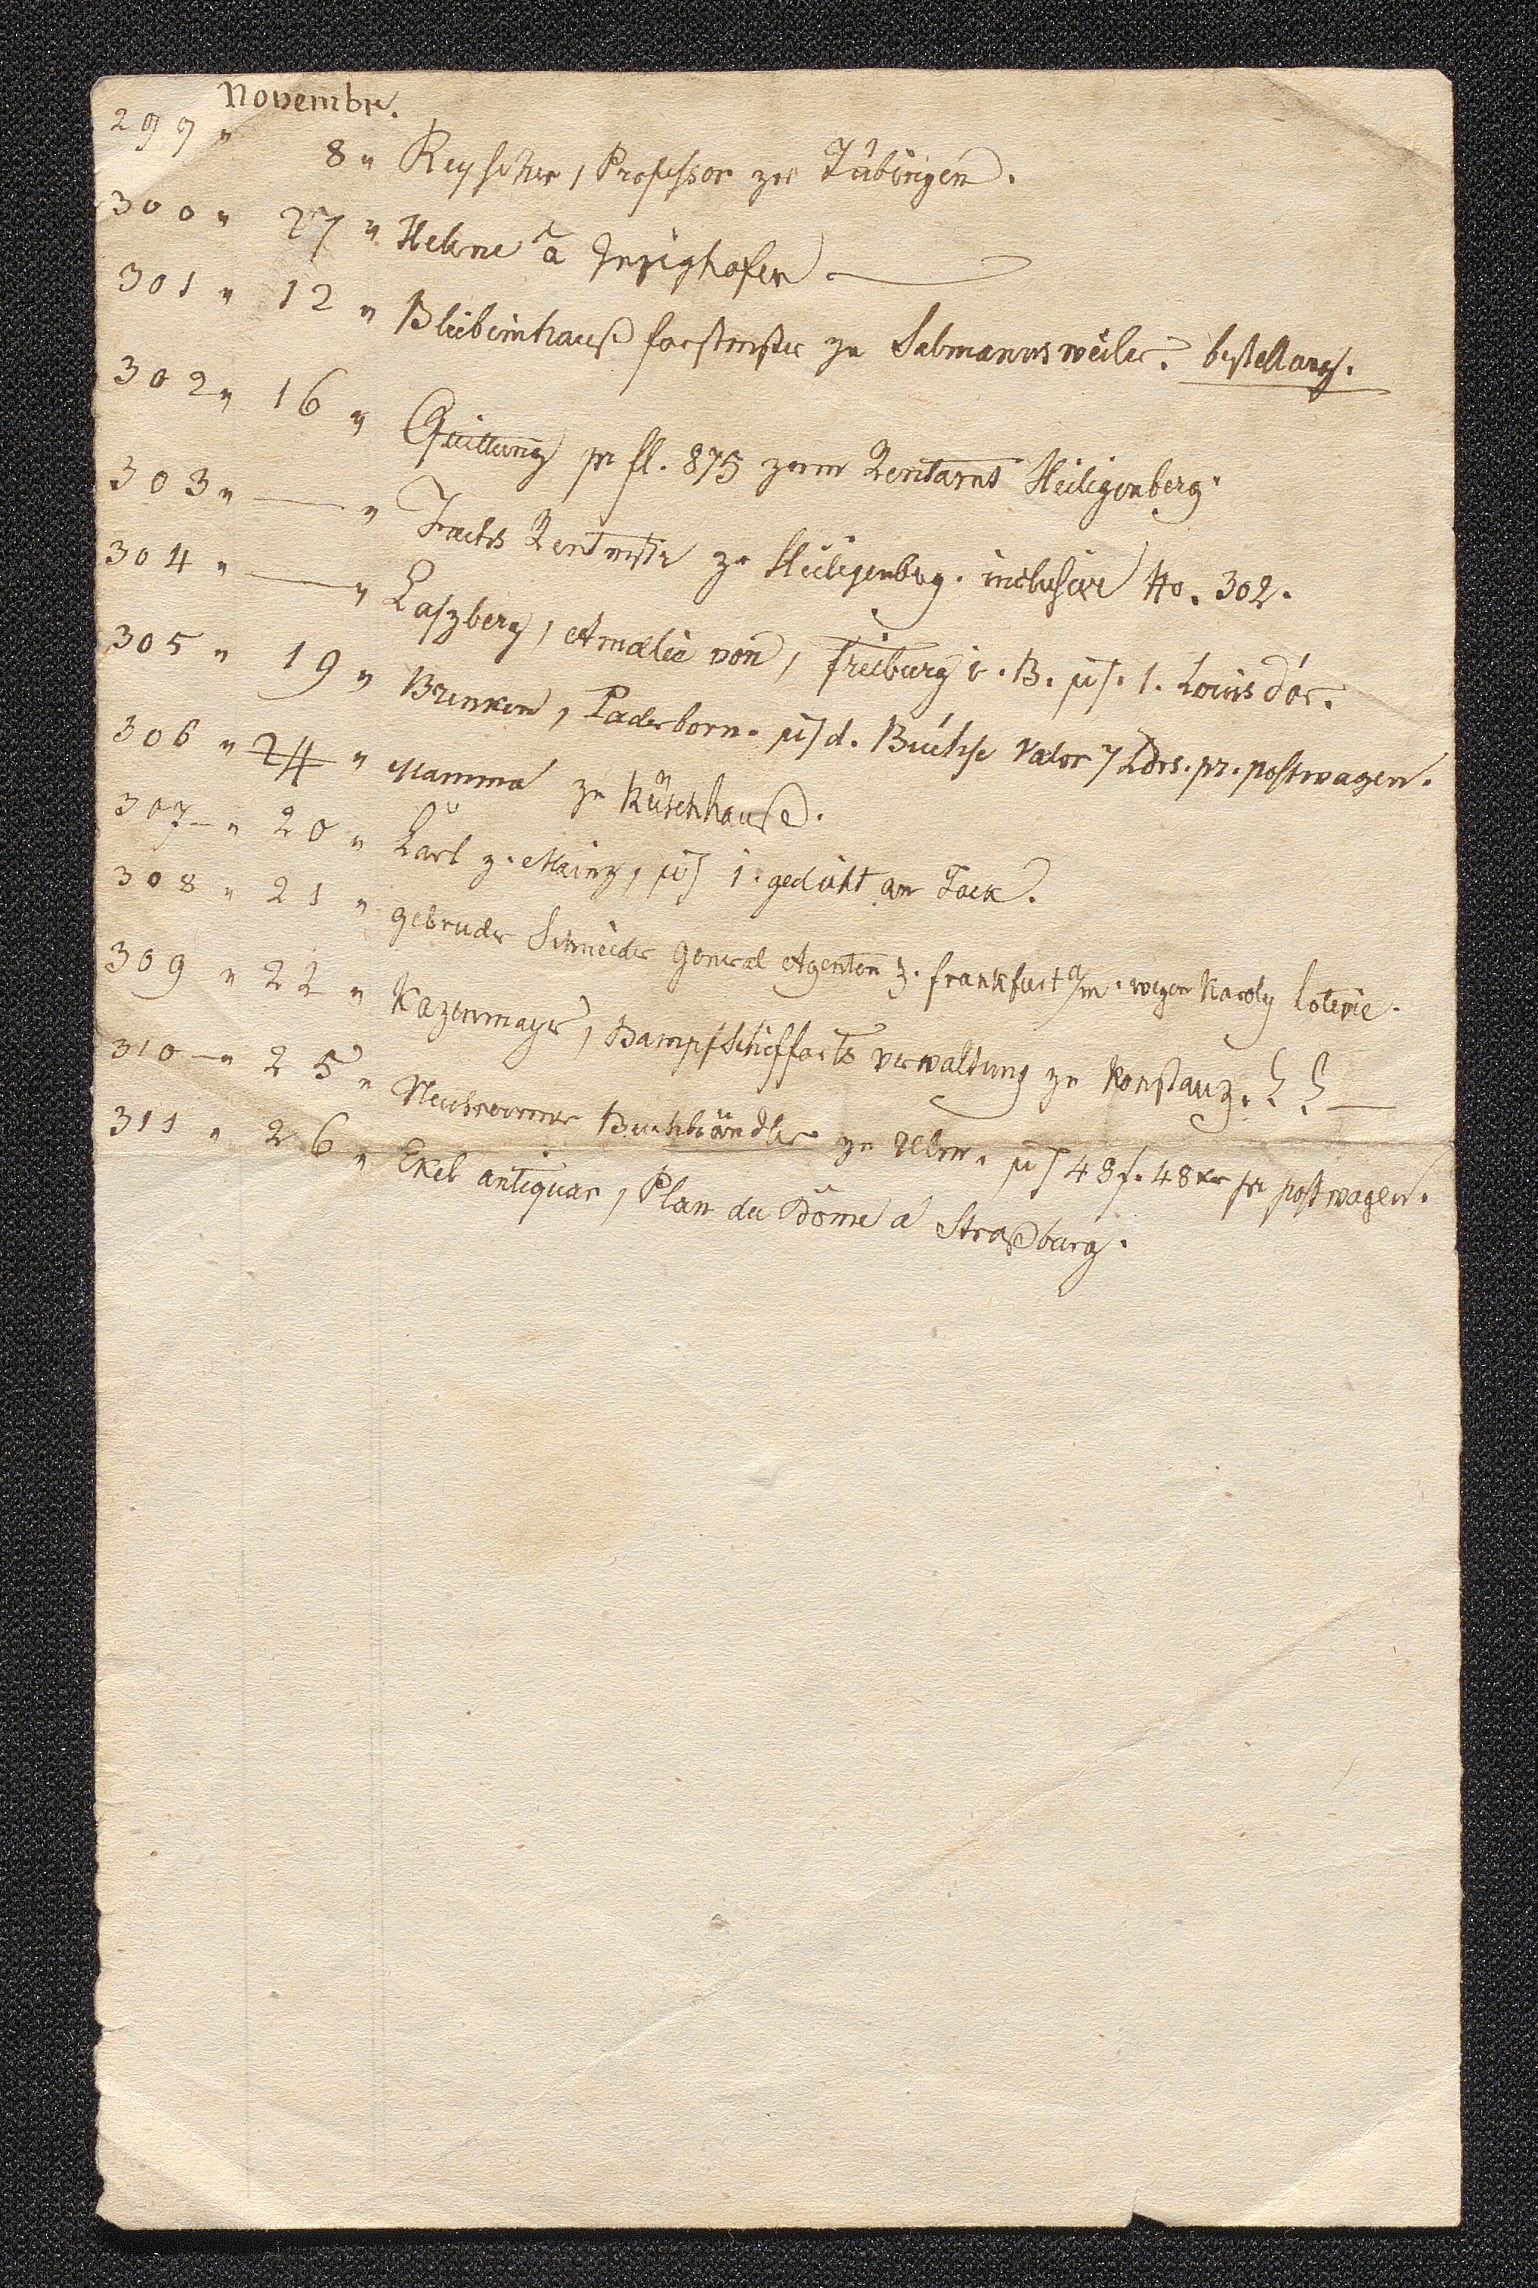 Novembr.
299 " 8 " Reyscher, Professor zu Tübingen.
300 " 27 " Helene à
301 " 12 " Bleibimhauß forstmster zu Salmannsweiler. bestallung.
302 " 16 " Quittung pr fl. 875 zum Rentamt Heiligenberg.
303 " — " Rentmstr zu Heiligenberg. inclusive No. 302.
304 " — " Laszberg, Amalie von, Freiburg i. B. mit 1. Louisdór.
305 " 19 " Brenken, Paderborn. mit d. Büchse Valor 7 Ldrs. pr. postwagen.
306 " 24 " Mamma zu Rüschhauße.
307 — " 20 " Carl z. Mainz, mit 1. gedicht an
308 " 21 " gebruder Schneider General Agenten z. frankfurt a/m. wegen Karoly loterie.
309 " 22 " Kazenmayer, Dampfschiffarts verwaltung zu Konstanz.
310 — " 25 " Neubronner Buchhändler zu Ulm. mit 48 f. 48 xr pr postwagen.
311 " 26 " Ekel antiquar, Plan du Dôme à Straßburg.